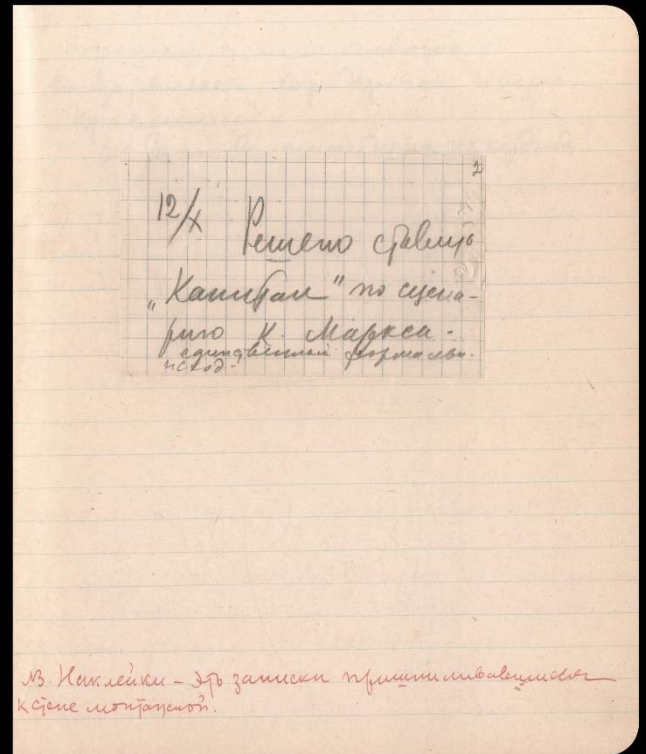 2
12/X Решено ставить
„Капитал" по сцена-
рию К. Маркса -
единственный формальн.
исход.
NB. Наклейки – это записки пришпиливавшиеся
к стене монтажной.